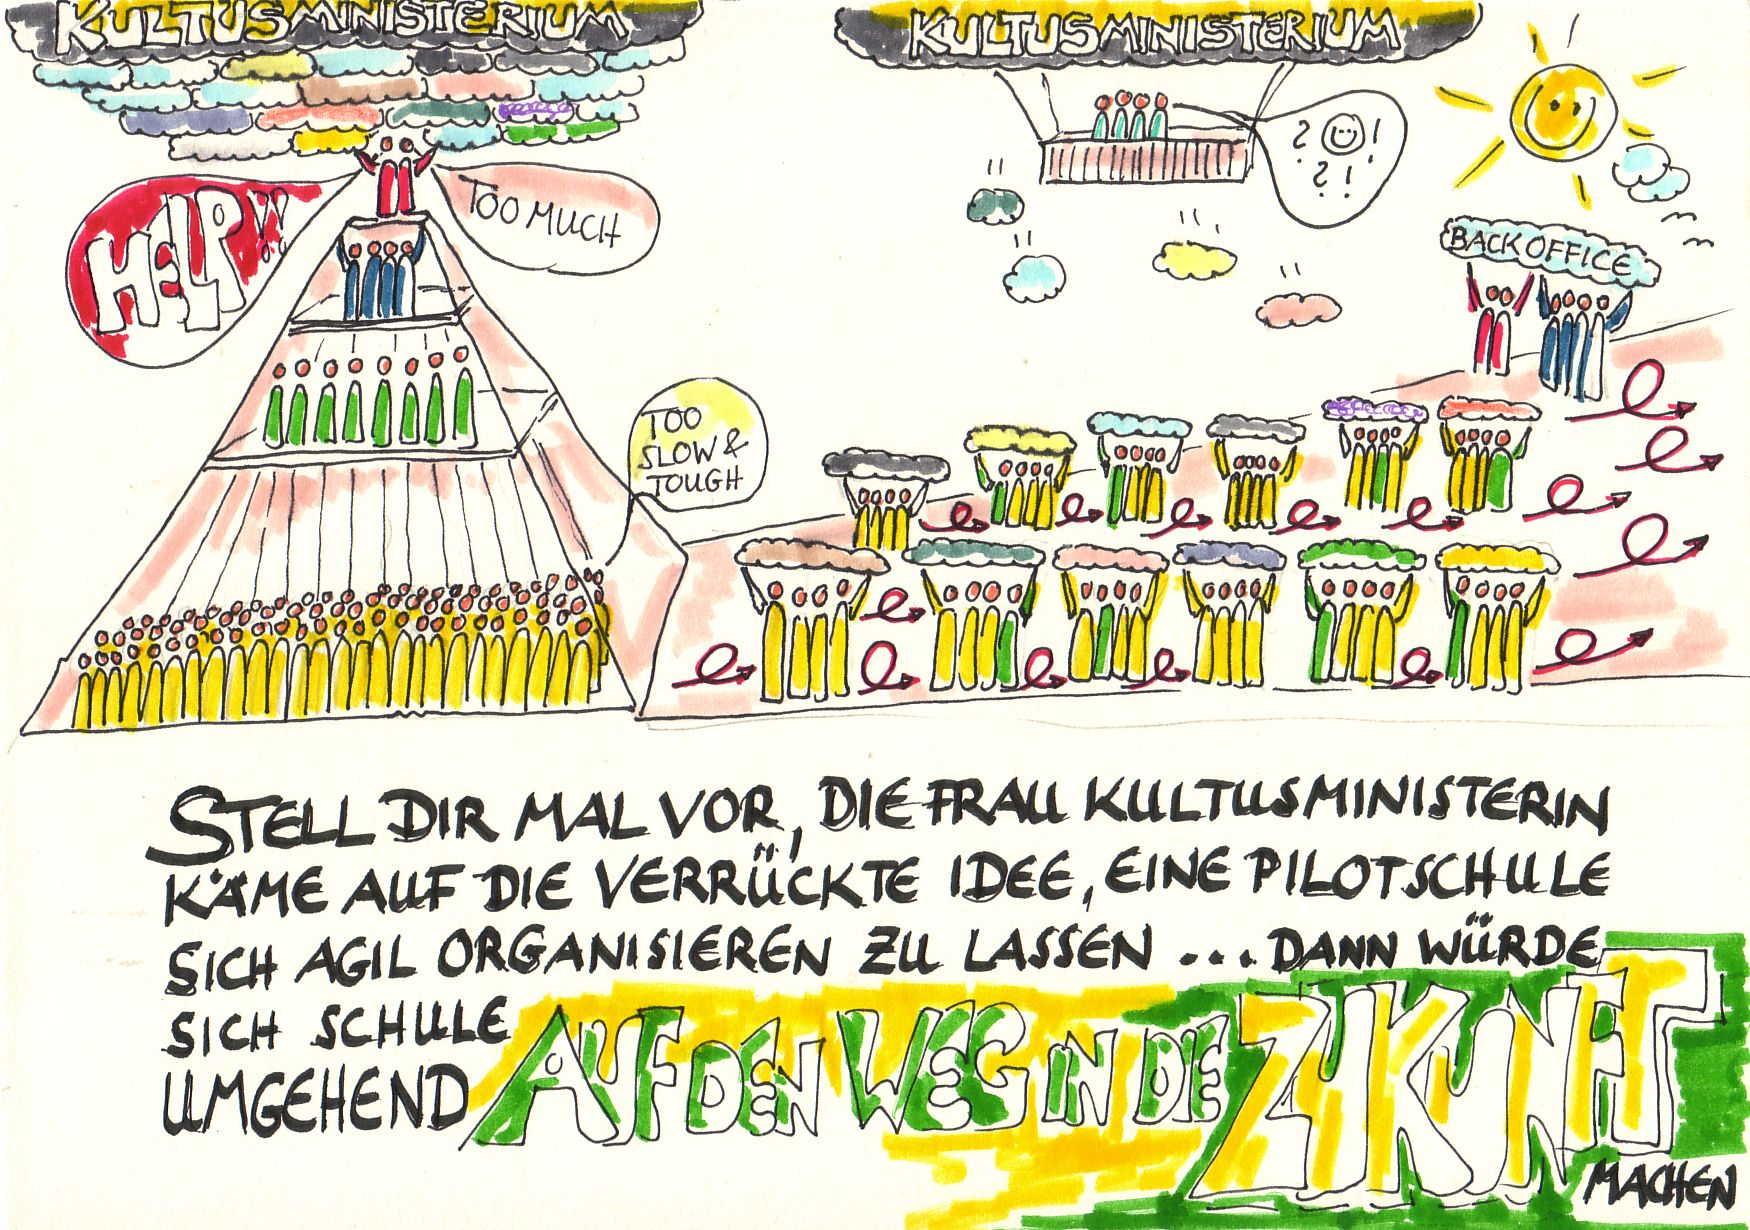 KULTUSMINISTERIUM
HELP!!
TOO MUCH
TOO
SLOW &
TOUGH
KULTUSMINISTERIUM
? !
? !
? !
BACKOFFICE
STELL DIR MAL VOR, DIE FRAU KULTUSMINISTERIN
KÄME AUF DIE VERRÜCKTE IDEE, EINE PILOTSCHULE
SICH AGIL ORGANISIEREN ZU LASSEN ... DANN WÜRDE
SICH SCHULE
UMGEHEND AUF DEN WEG IN DIE ZUKUNFT
MACHEN